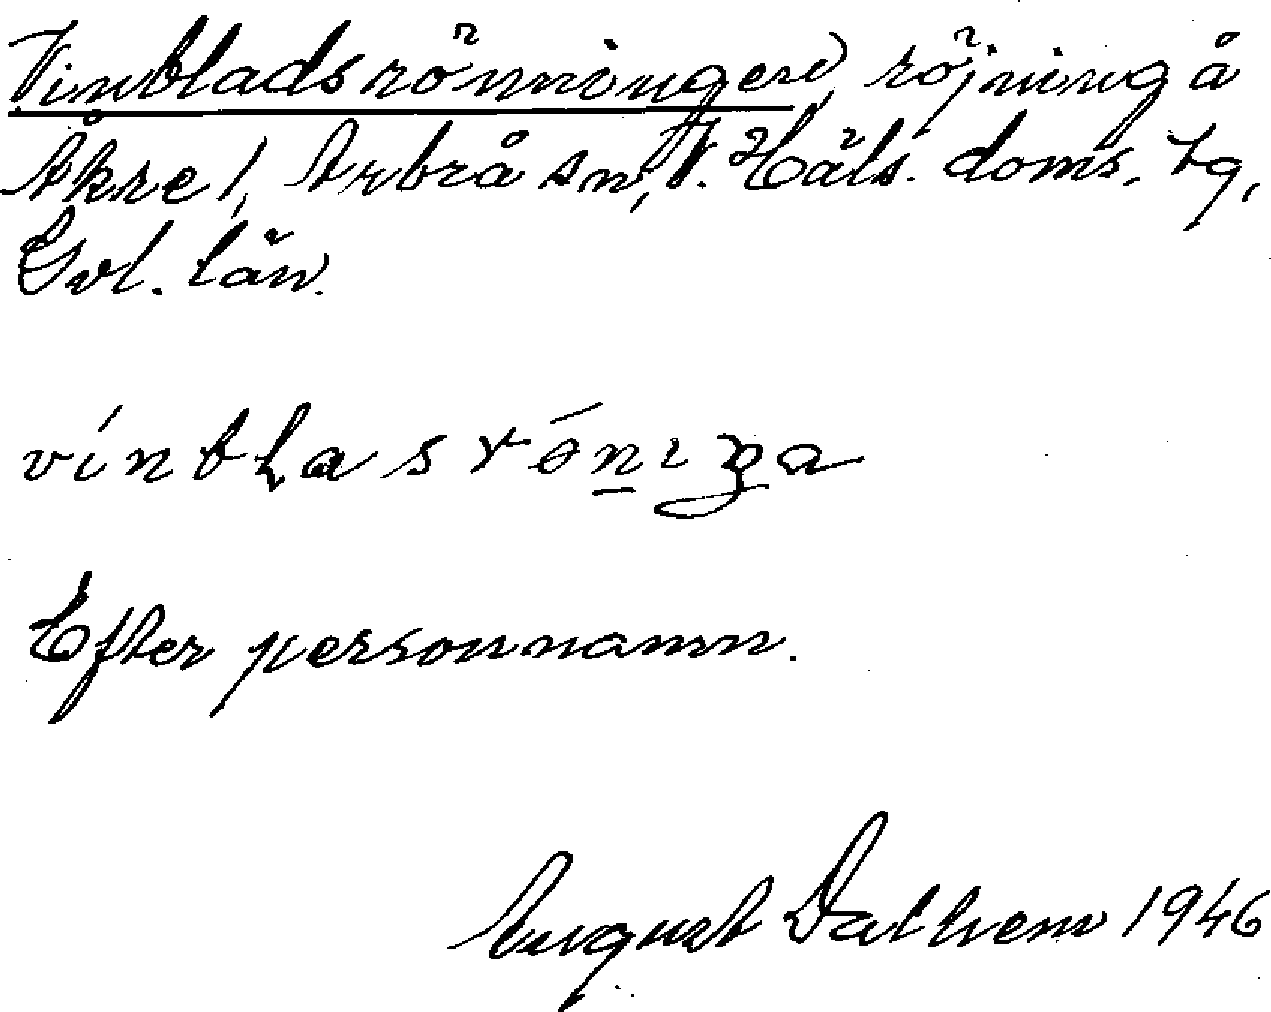 Vinbladsrönningen, röjning å
Åkre 1, Arbrå sn, V. Häls. doms. tg,
Gvl. län.
vinbłasrǿniŋa
Efter personnamn.
August Dalhem 1946